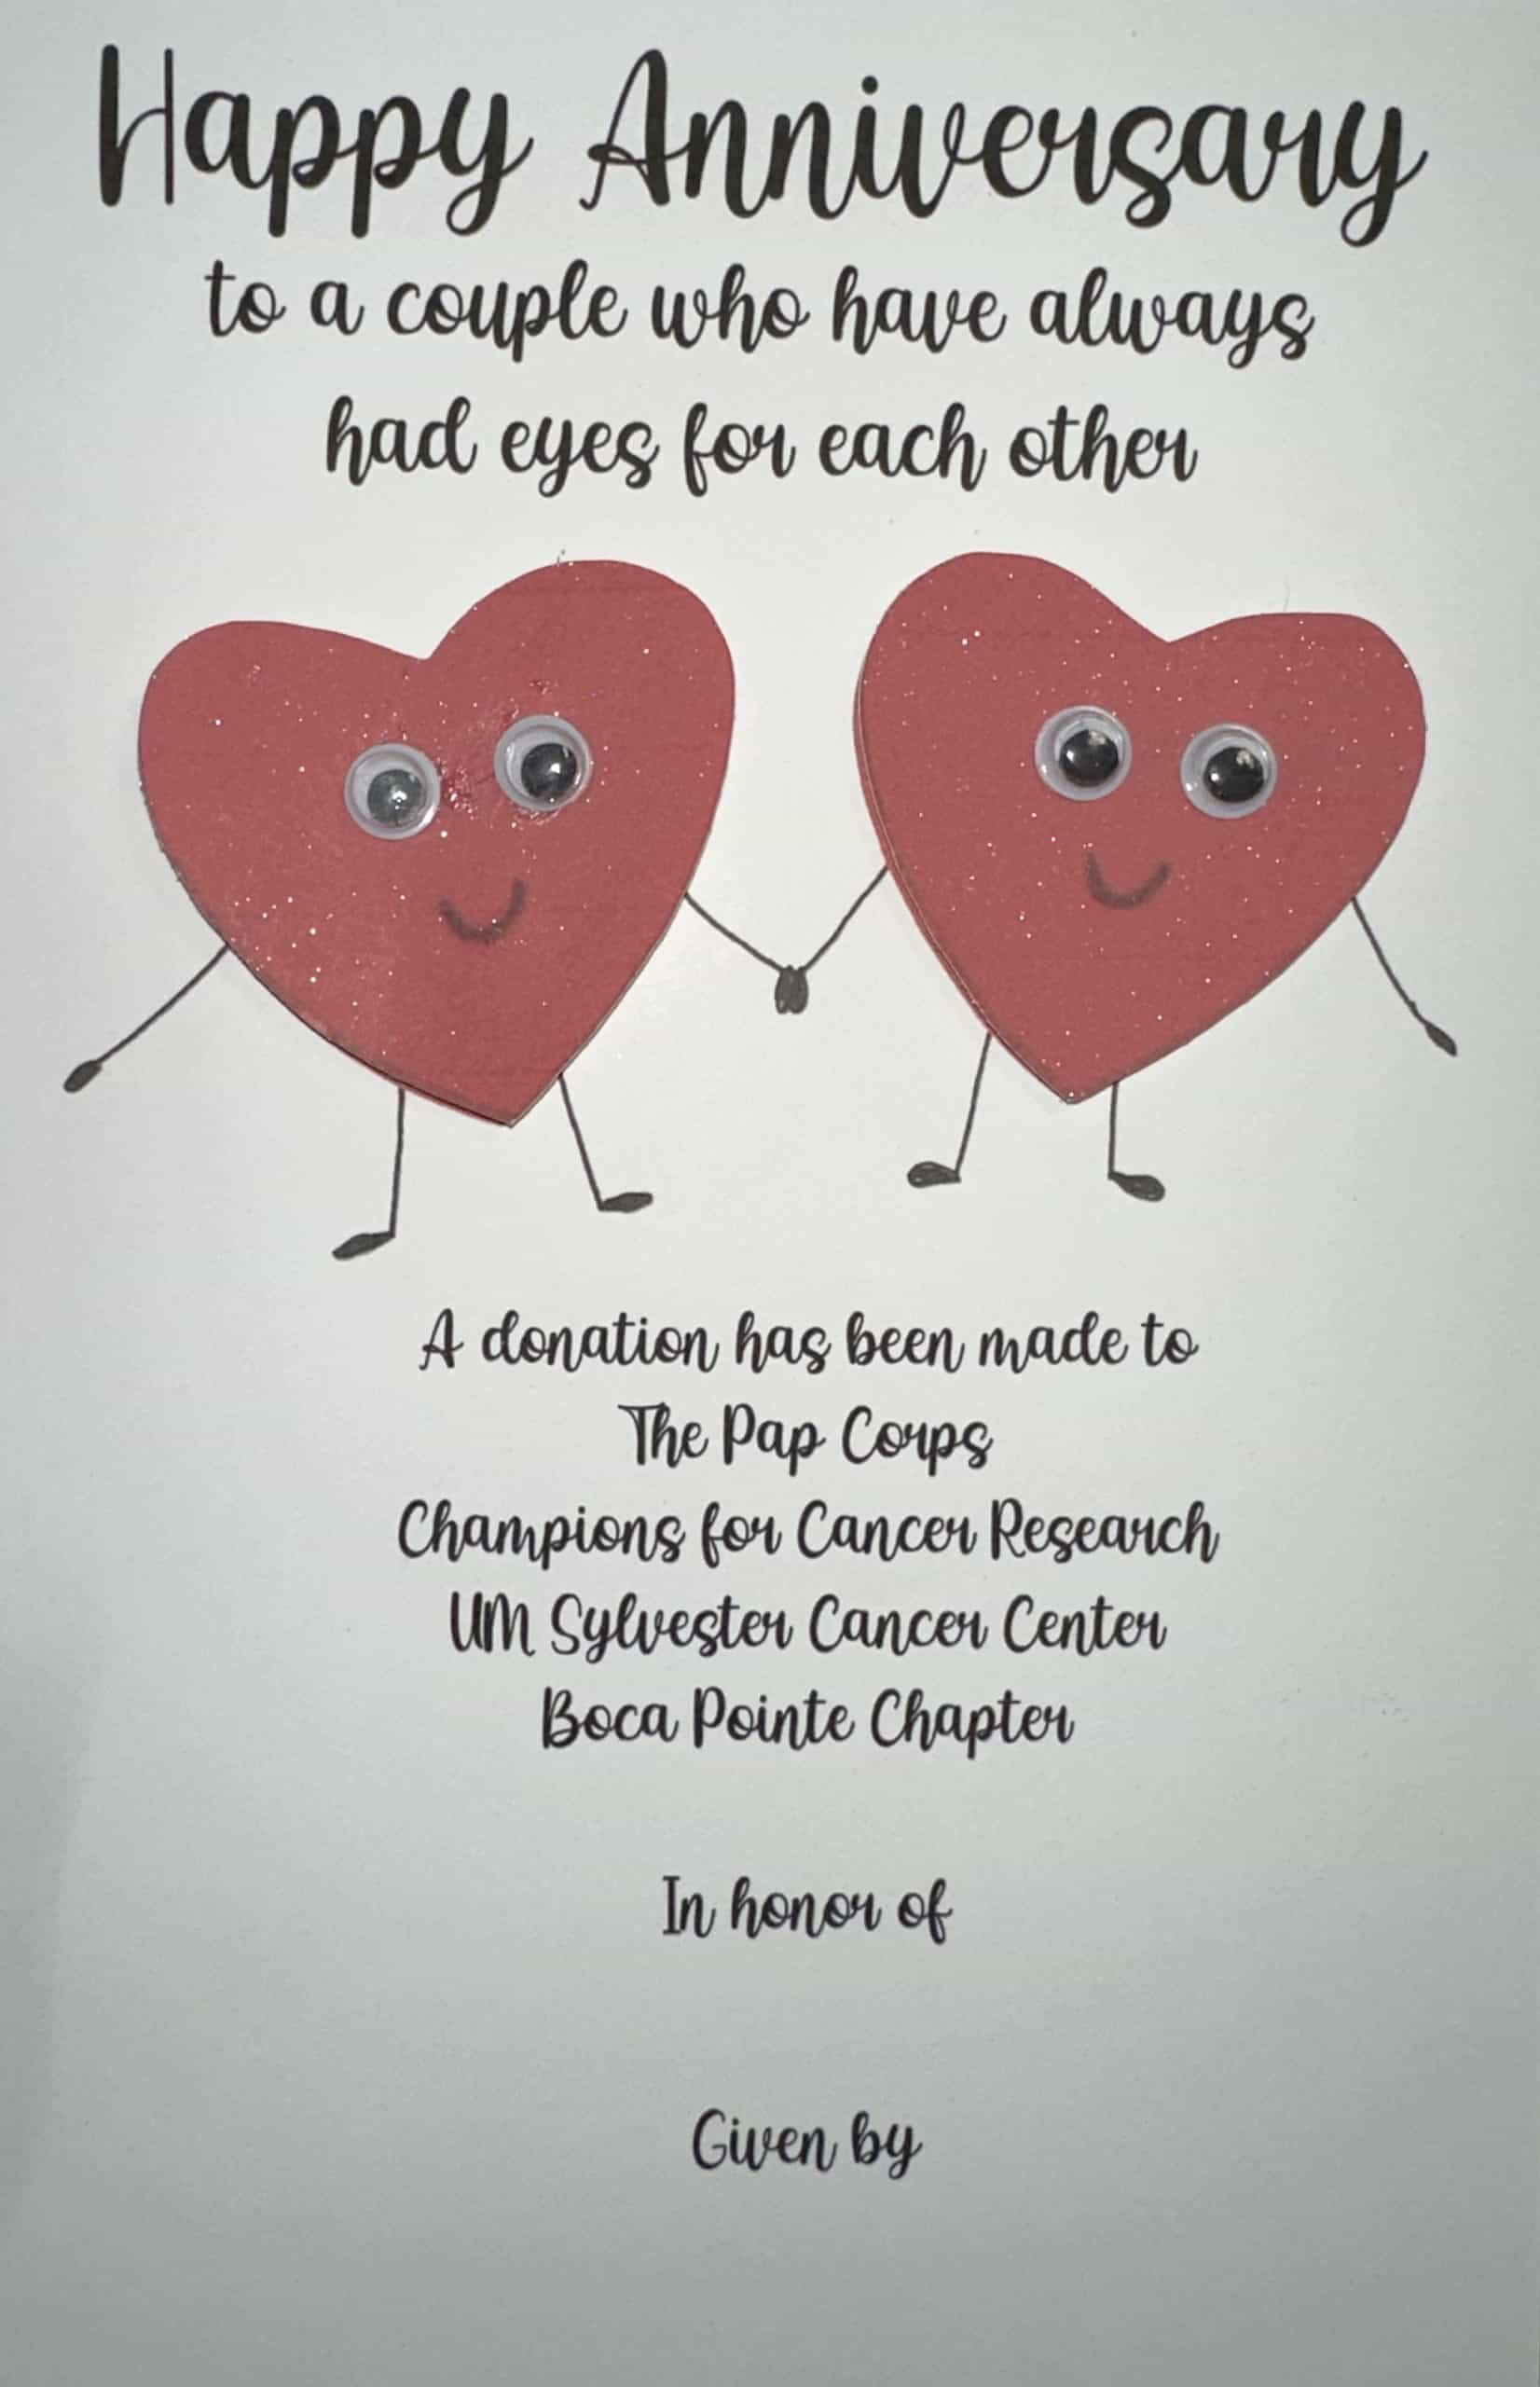 Happy Anniversary
to a couple who have always
had eyes for each other
A donation has been made to
The Pap Corps
Champions for Cancer Research
UM Sylvester Cancer Center
Boca Pointe Chapter
In honor of
Given by